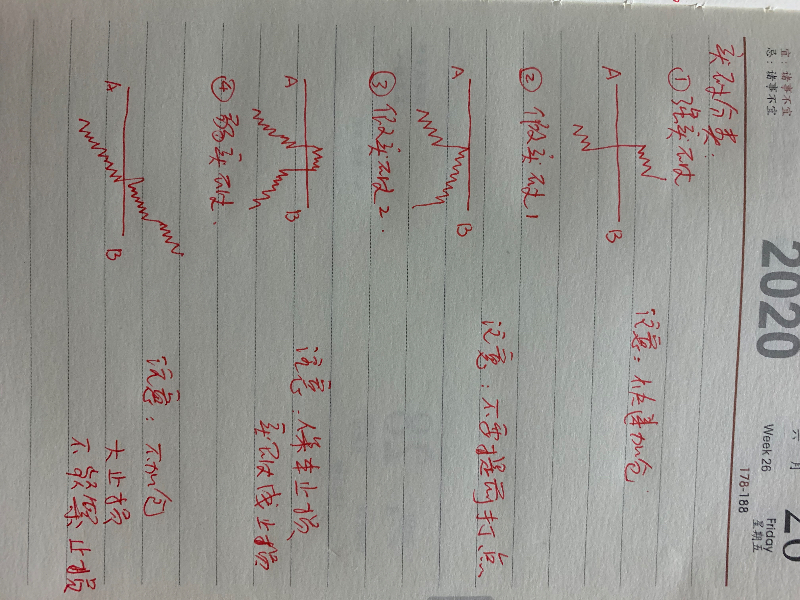 宜:诸事不宜
忌:诸事不宜
2020
六月
Week 26
Friday
星期五
178-188
突破分类:
①强突破
A
B
注意:快速加仓
②假突破1
A
B
注意:不要提前打点
③假突破2.
A
B
注意:保本止损
突破成止损
④弱突破.
A
B
注意:不加仓
大止损
不频繁止损